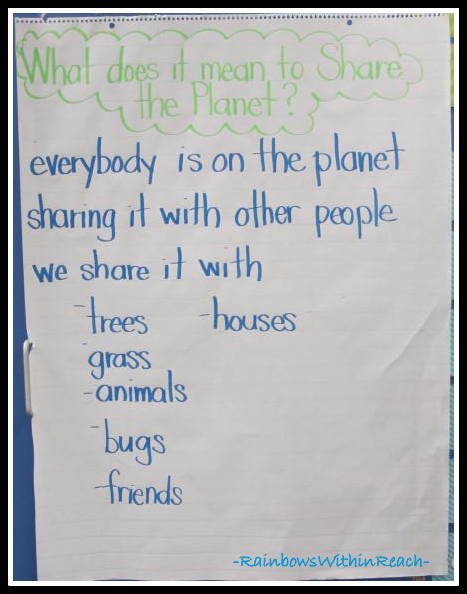 What does it mean to Share
the Planet?
everybody is on the planet
sharing it with other people
we share it with
-trees -houses
-grass
-animals
-bugs
-friends
-RainbowsWithinReach-